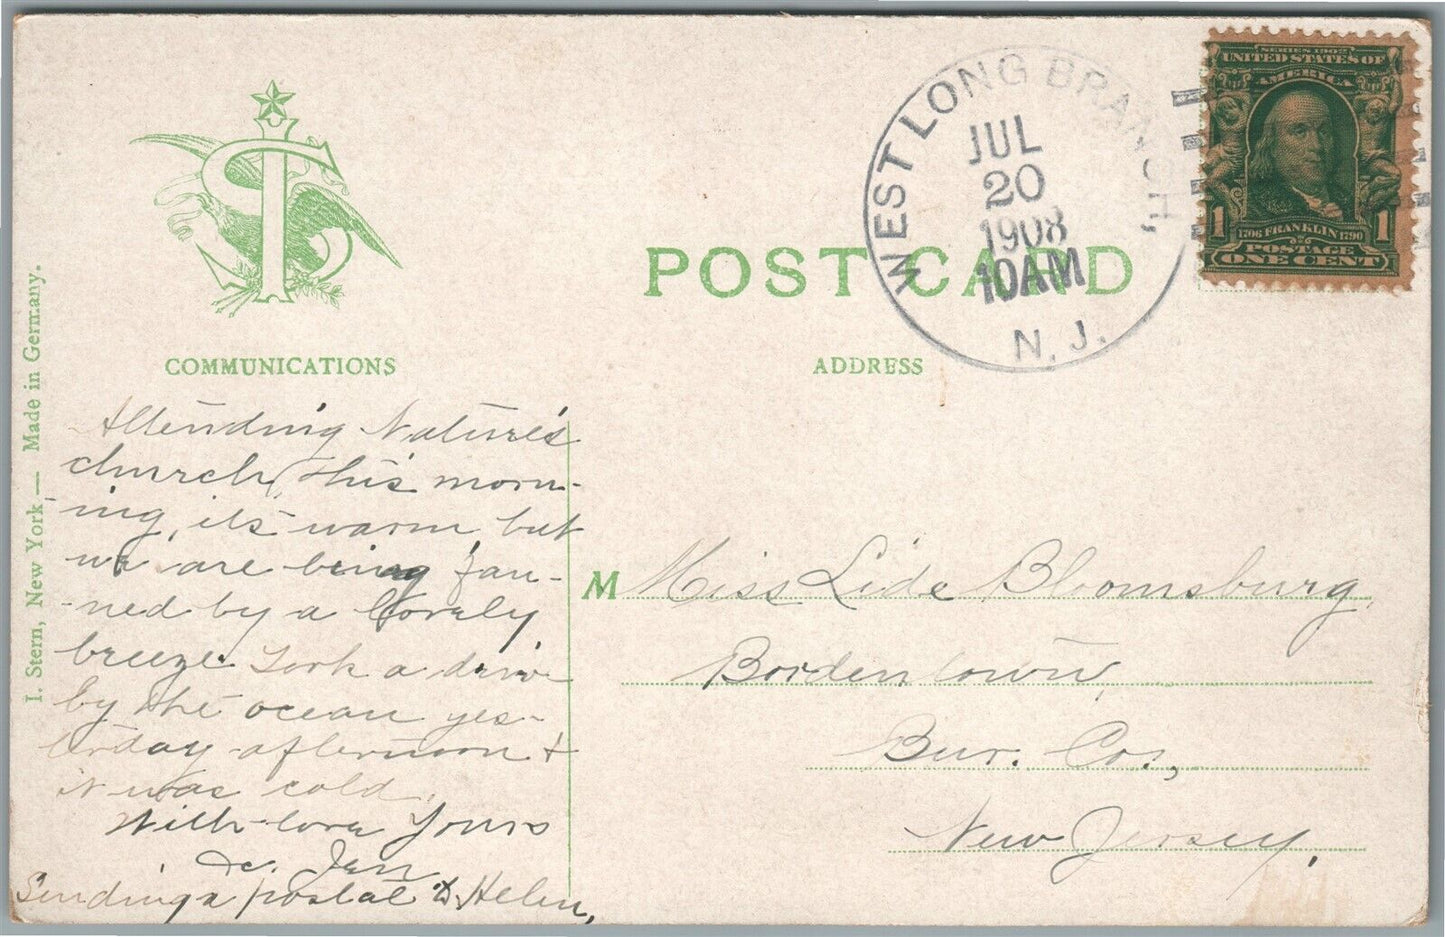 I. Stern, New York — Made in Germany.
POST CARD
COMMUNICATIONS
ADDRESS
WEST LONG BRANCH,
JUL
20
1908
10AM
N.J.
SERIES 1902
UNITED STATES OF
AMERICA
1 1706 FRANKLIN 1790 1
POSTAGE
ONE CENT
Attending Nature's
church this morn-
ing, its warm but
we are being fan-
-ned by a lovely
breeze. Took a drive
by the ocean yes-
terday afternoon +
it was cold.
With love Yours
&c. Jen
Sending a postal to Helen.
M Miss Lide Bloomsburg,
Bordentown,
Bur. Co.,
New Jersey.